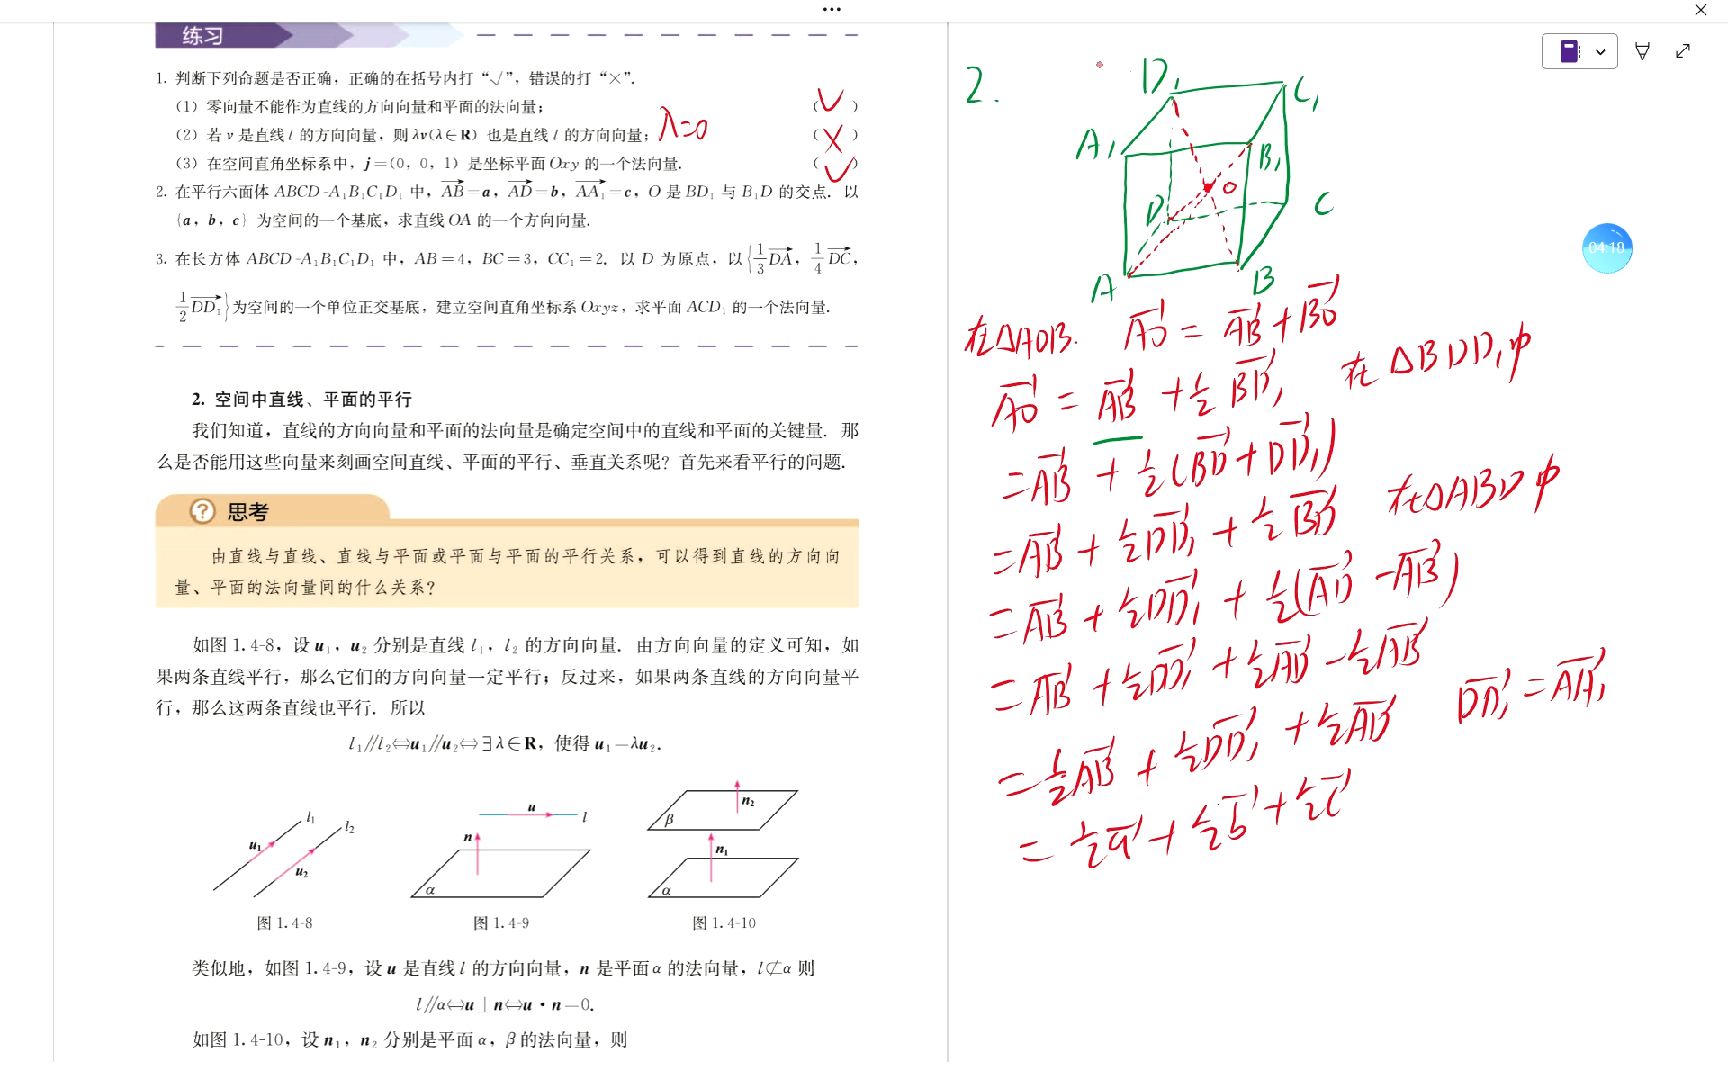 练习
1. 判断下列命题是否正确，正确的在括号内打“√”，错误的打“×”.
（1）零向量不能作为直线的方向向量和平面的法向量； （√）
（2）若 v 是直线 l 的方向向量，则 λv(λ∈R) 也是直线 l 的方向向量； λ=0 （×）
（3）在空间直角坐标系中，j=(0，0，1) 是坐标平面 Oxy 的一个法向量. （√）
2. 在平行六面体 ABCD-A₁B₁C₁D₁ 中，AB⃗=a，AD⃗=b，AA₁⃗=c，O 是 BD₁ 与 B₁D 的交点. 以
{a，b，c} 为空间的一个基底，求直线 OA 的一个方向向量.
3. 在长方体 ABCD-A₁B₁C₁D₁ 中，AB=4，BC=3，CC₁=2. 以 D 为原点，以{1/3 DA⃗，1/4 DC⃗，
1/2 DD₁⃗}为空间的一个单位正交基底，建立空间直角坐标系 Oxyz，求平面 ACD₁ 的一个法向量.
2. 空间中直线、平面的平行
我们知道，直线的方向向量和平面的法向量是确定空间中的直线和平面的关键量. 那
么是否能用这些向量来刻画空间直线、平面的平行、垂直关系呢？首先来看平行的问题.
? 思考
由直线与直线、直线与平面或平面与平面的平行关系，可以得到直线的方向向
量、平面的法向量间的什么关系？
如图 1.4-8，设 u₁，u₂ 分别是直线 l₁，l₂ 的方向向量. 由方向向量的定义可知，如
果两条直线平行，那么它们的方向向量一定平行；反过来，如果两条直线的方向向量平
行，那么这两条直线也平行. 所以
l₁∥l₂⇔u₁∥u₂⇔∃λ∈R，使得 u₁=λu₂.
l₁ l₂ u₁ u₂
u l n α
β n₂ n₁ α
图 1.4-8 图 1.4-9 图 1.4-10
类似地，如图 1.4-9，设 u 是直线 l 的方向向量，n 是平面 α 的法向量，l⊄α 则
l∥α⇔u⊥n⇔u·n=0.
如图 1.4-10，设 n₁，n₂ 分别是平面 α，β 的法向量，则
2.
D₁ C₁
A₁ B₁
O
D C
A B
04:18
在△AOB. AO⃗ = AB⃗ + BO⃗
AO⃗ = AB⃗ + ½BD₁⃗ 在△BDD₁中
= AB⃗ + ½(BD⃗ + DD₁⃗)
= AB⃗ + ½DD₁⃗ + ½BD⃗ 在△ABD中
= AB⃗ + ½DD₁⃗ + ½(AD⃗ - AB⃗)
= AB⃗ + ½DD₁⃗ + ½AD⃗ - ½AB⃗
= ½AB⃗ + ½DD₁⃗ + ½AD⃗ DD₁⃗ = AA₁⃗
= ½a⃗ + ½b⃗ + ½c⃗